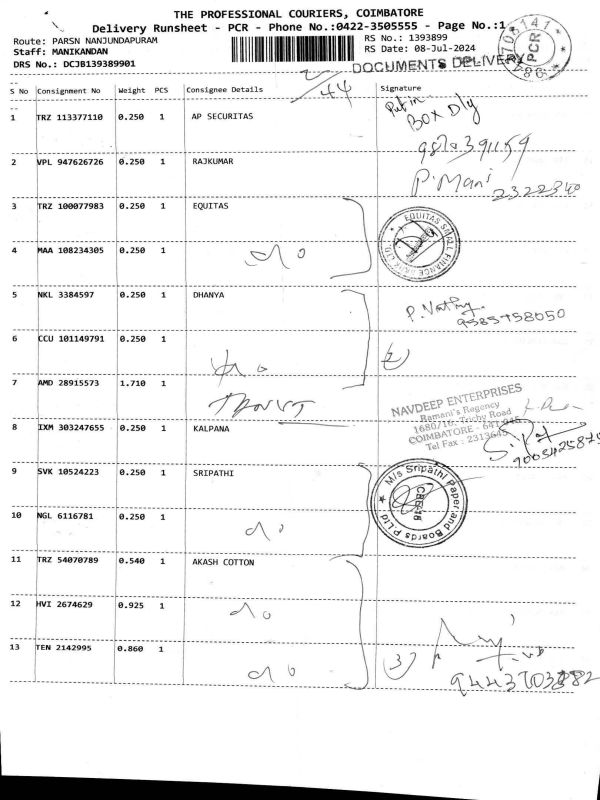 THE PROFESSIONAL COURIERS, COIMBATORE
Delivery Runsheet - PCR - Phone No.:0422-3505555 - Page No.:1
Route: PARSN NANJUNDAPURAM
RS No.: 1393899
Staff: MANIKANDAN
RS Date: 08-Jul-2024
DRS No.: DCJB139389901
DOCUMENTS DELIVERY
PCR
44
S No Consignment No Weight PCS Consignee Details Signature
1 TRZ 113377110 0.250 1 AP SECURITAS
Put in
BOX Dly
2 VPL 947626726 0.250 1 RAJKUMAR
P. Mani
2322340
3 TRZ 100077983 0.250 1 EQUITAS
EQUITAS SMALL FINANCE BANK LTD.
4 MAA 108234305 0.250 1
5 NKL 3384597 0.250 1 DHANYA
9585758050
6 CCU 101149791 0.250 1
2
7 AMD 28915573 1.710 1
NAVDEEP ENTERPRISES
Ramani's Regency
1680/16, Trichy Road
COIMBATORE - 641 045
Tel Fax : 2313645
8 IXM 303247655 0.250 1 KALPANA
9 SVK 10524223 0.250 1 SRIPATHI
M/s Sripathi Paper and Boards P.Ltd
CBE-18
10 NGL 6116781 0.250 1
11 TRZ 54070789 0.540 1 AKASH COTTON
12 HVI 2674629 0.925 1
13 TEN 2142995 0.860 1
3